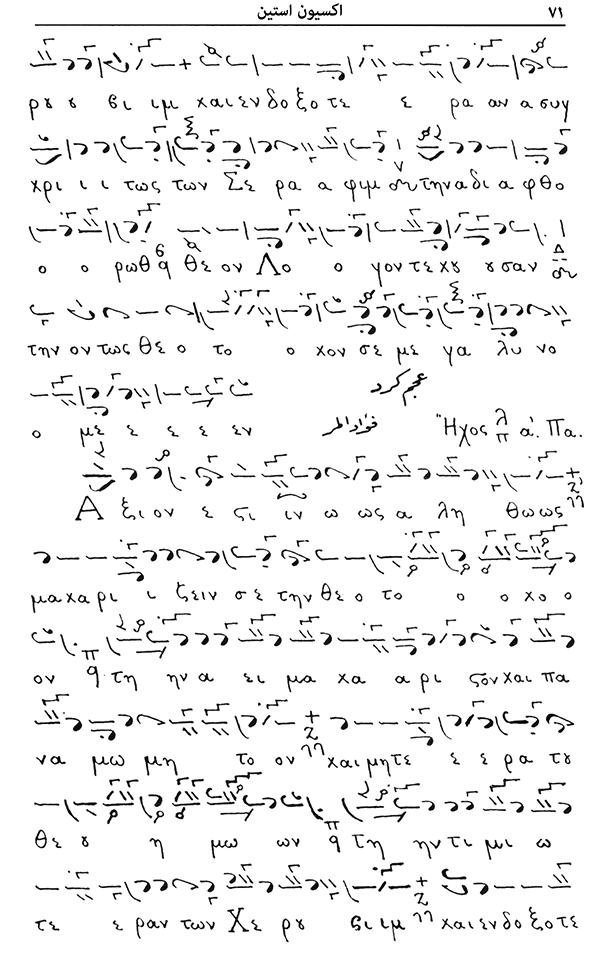 اكسيون استين ٧١
ρȣ ȣ βι ιμ και εν δο ξο τε ε ρα αν α συγ
κρι ι ι τως των Σε ρα α φιμ την α δι α φθο
ο ο ρως θε ον Λο ο γον τε κȣ ȣ σαν
την ον τως θε ο το ο κον σε με γα λυ νο
عجم كرد
ο με ε ε ε εν فؤاد المر Ἦχος λ π α'. Πα.
Α ξι ον ε στι ιν ω ως α λη θω ως
μα κα ρι ι ζειν σε την θε ο το ο ο κο ο
ον τη ην α ει μα κα α ρι στον και πα
να μω μη το ον και μη τε ε ε ρα τȣ
θε ȣ η μω ων τη ην τι μι ω
τε ε ραν των Χε ρȣ βι ιμ και εν δο ξο τε